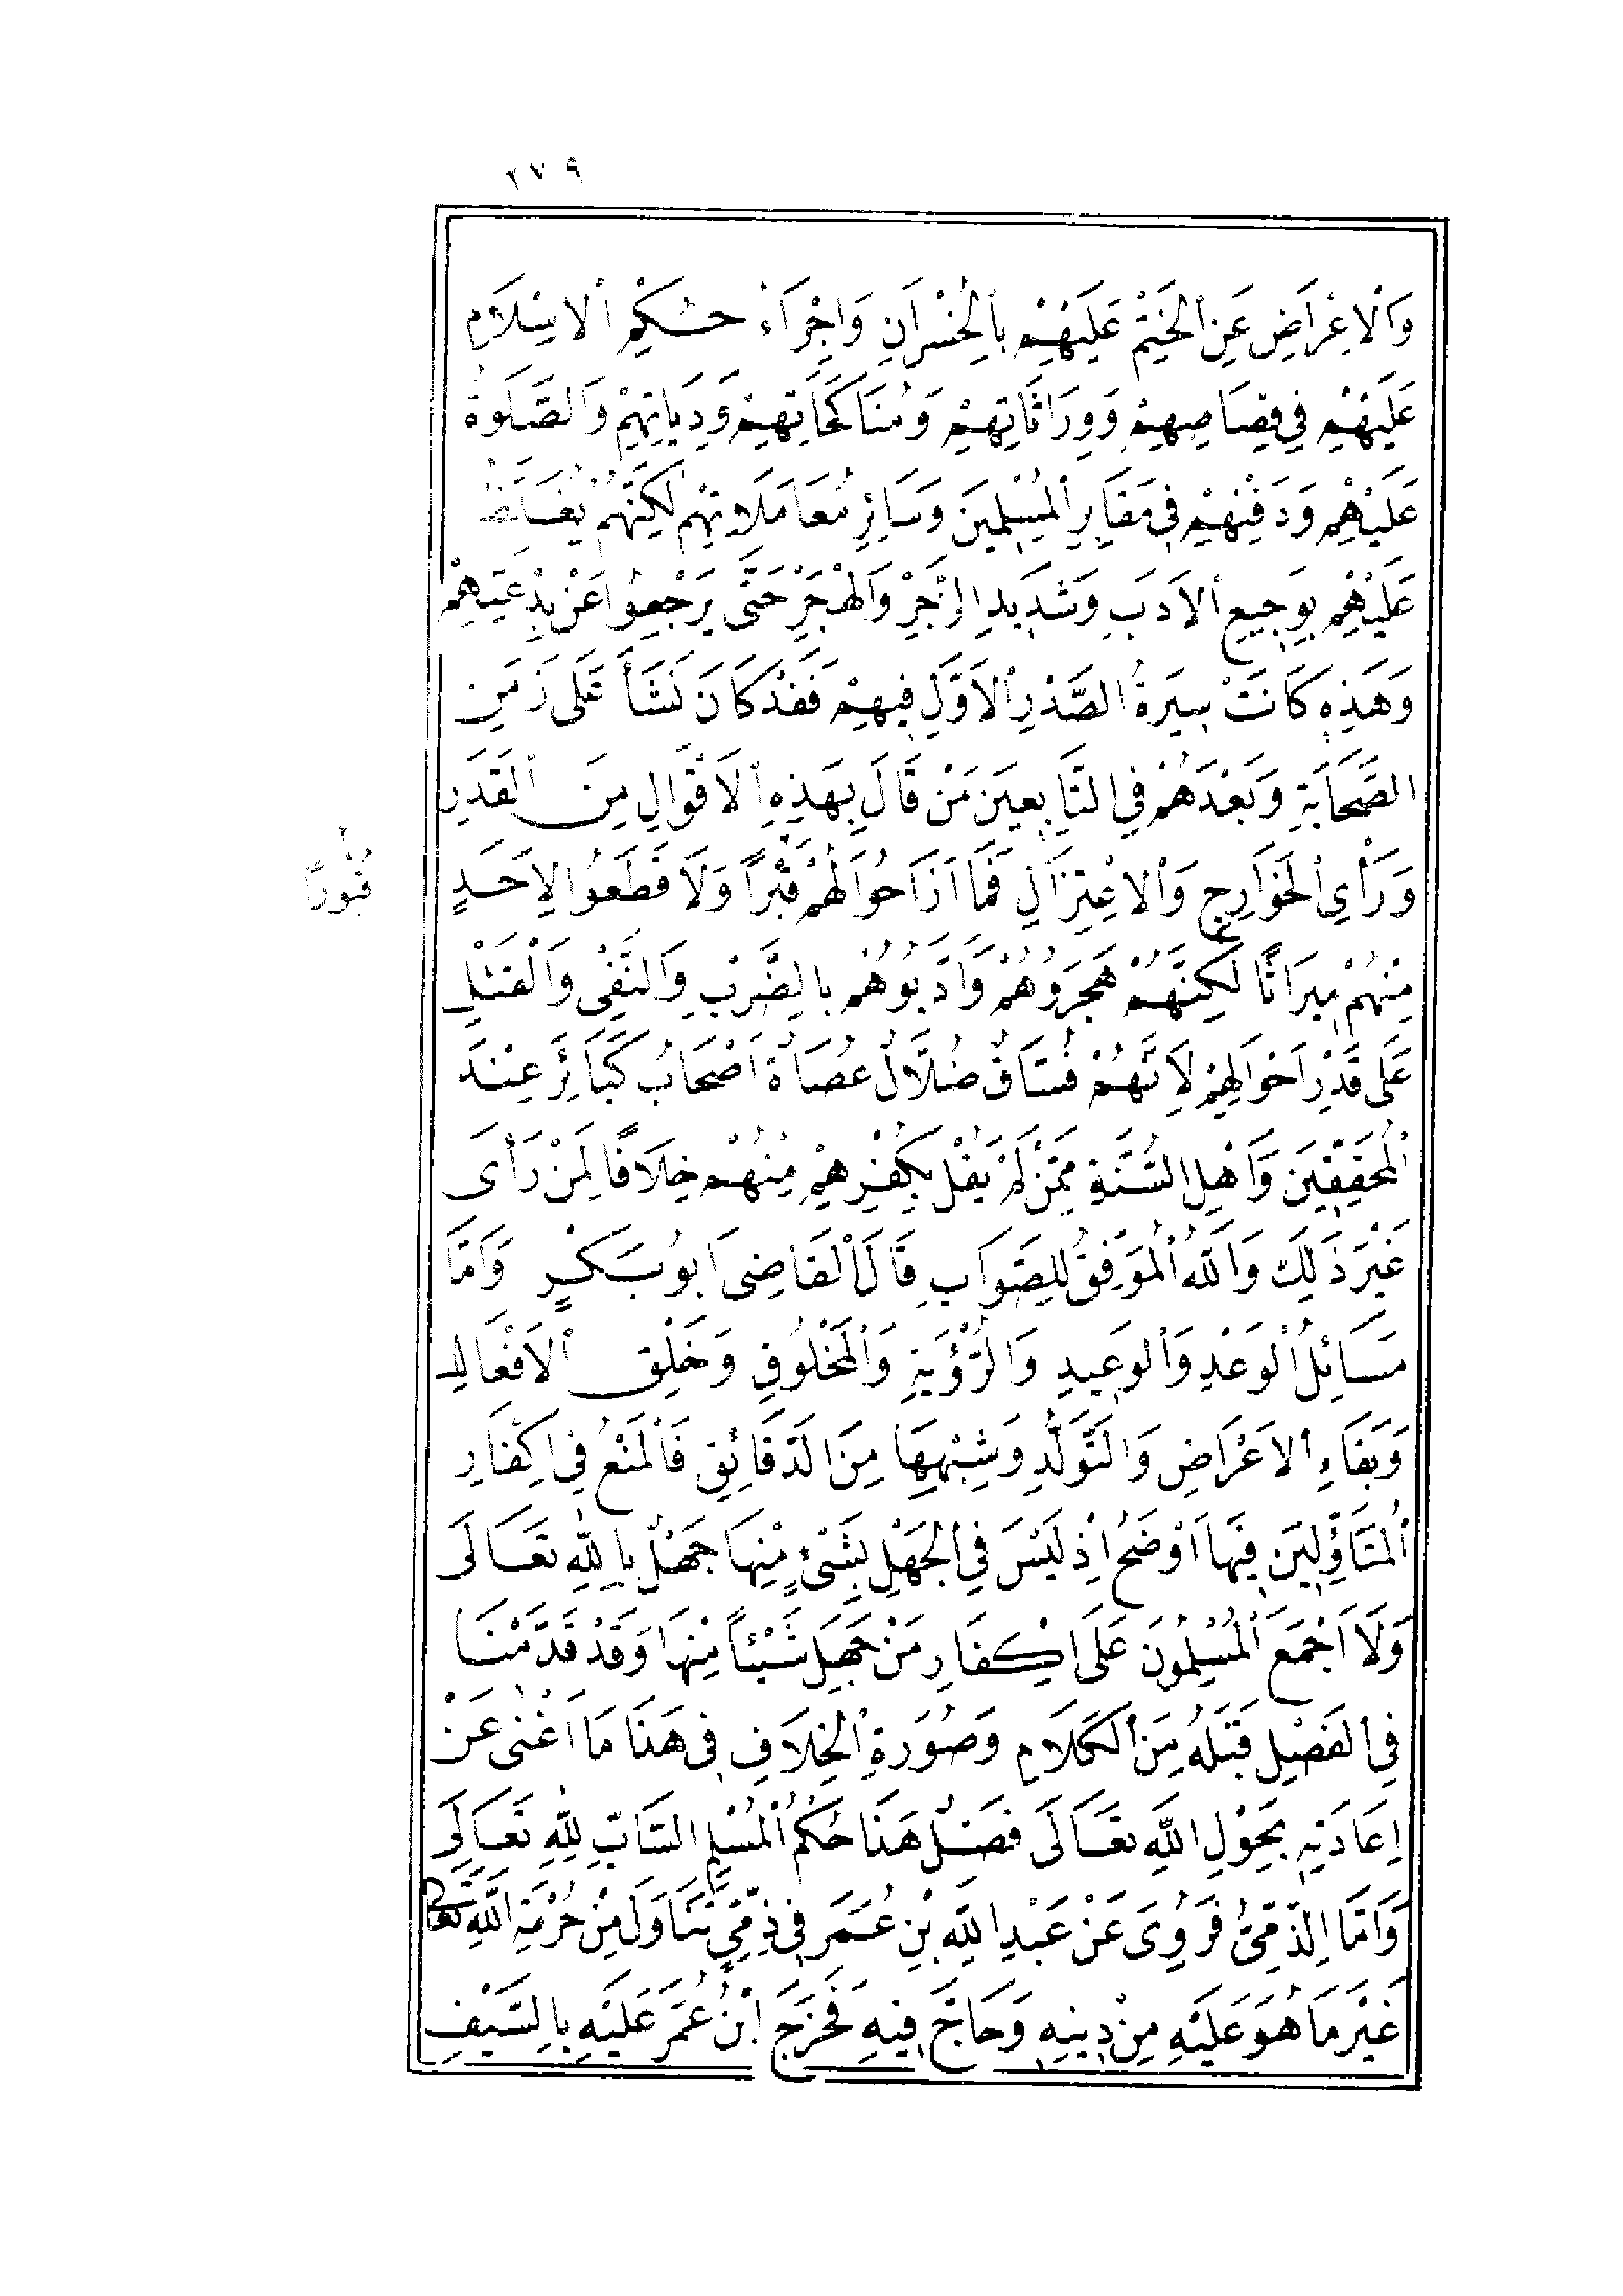 ٢٧٩
وَالْاِعْرَاضِ عَنِ الْخَتْمِ عَلَيْهِمْ بِالْخُسْرَانِ وَاِجْرَاءِ حُكْمِ الْاِسْلَامِ
عَلَيْهِمْ فِي قِصَاصِهِمْ وَوِرَاثَاتِهِمْ وَمُنَاكَحَاتِهِمْ وَدِيَاتِهِمْ وَالصَّلٰوةُ
عَلَيْهِمْ وَدَفْنِهِمْ فِي مَقَابِرِ الْمُسْلِمِينَ وَسَائِرِ مُعَامَلَاتِهِمْ لٰكِنَّهُمْ يُغَلَّظُ
عَلَيْهِمْ بِوَجِيعِ الْاَدَبِ وَشَدِيدِ الزَّجْرِ وَالْهَجْرِ حَتَّى يَرْجِعُوا عَنْ بِدْعَتِهِمْ
وَهَذِهِ كَانَتْ سِيرَةُ الصَّدْرِ الْاَوَّلِ فِيهِمْ فَقَدْ كَانَ نَشَأَ عَلَى زَمَنِ
الصَّحَابَةِ وَبَعْدَهُمْ فِي التَّابِعِينَ مَنْ قَالَ بِهَذِهِ الْاَقْوَالِ مِنَ الْقَدَرِ
وَرَأْيِ الْخَوَارِجِ وَالْاِعْتِزَالِ فَمَا اَزَاحُوا لَهُمْ قَبْرًا وَلَا قَطَعُوا لِاَحَدٍ
قُبُورًا
مِنْهُمْ مِيرَاثًا لَكِنَّهُمْ هَجَرُوهُمْ وَاَدَّبُوهُمْ بِالضَّرْبِ وَالنَّفْيِ وَالْقَتْلِ
عَلَى قَدْرِ اَحْوَالِهِمْ لِاَنَّهُمْ فُسَّاقٌ ضُلَّالٌ عُصَاةٌ اَصْحَابُ كَبَائِرَ عِنْدَ
الْمُحَقِّقِينَ وَاَهْلِ السُّنَّةِ مِمَّنْ لَمْ يَقُلْ بِكُفْرِهِمْ مِنْهُمْ خِلَافًا لِمَنْ رَأَى
غَيْرَ ذَلِكَ وَاللّٰهُ الْمُوَفِّقُ لِلصَّوَابِ قَالَ الْقَاضِي اَبُو بَكْرٍ وَاَمَّا
مَسَائِلُ الْوَعْدِ وَالْوَعِيدِ وَالرُّؤْيَةِ وَالْمَخْلُوقِ وَخَلْقِ الْاَفْعَالِ
وَبَقَاءِ الْاَعْرَاضِ وَالتَّوَلُّدِ وَشِبْهِهَا مِنَ الدَّقَائِقِ فَالْمَنْعُ فِي اِكْفَارِ
الْمُتَأَوِّلِينَ فِيهَا اَوْضَحُ اِذْ لَيْسَ فِي الْجَهْلِ بِشَيْءٍ مِنْهَا جَهْلٌ بِاللّٰهِ تَعَالَى
وَلَا اَجْمَعَ الْمُسْلِمُونَ عَلَى اِكْفَارِ مَنْ جَهِلَ شَيْئًا مِنْهَا وَقَدْ قَدَّمْنَا
فِي الْفَصْلِ قَبْلَهُ مِنَ الْكَلَامِ وَصُورَةِ الْخِلَافِ فِي هَذَا مَا اَغْنٰى عَنْ
اِعَادَتِهِ بِحَوْلِ اللّٰهِ تَعَالَى فَصْلٌ هَذَا حُكْمُ الْمُسْلِمِ السَّابِّ لِلّٰهِ تَعَالَى
وَاَمَّا الذِّمِّيُّ فَرُوِيَ عَنْ عَبْدِ اللّٰهِ بْنِ عُمَرَ فِي ذِمِّيٍّ تَنَاوَلَ مِنْ حُرْمَةِ اللّٰهِ تَعَالَى
غَيْرَ مَا هُوَ عَلَيْهِ مِنْ دِينِهِ وَحَاجَّ فِيهِ فَخَرَجَ ابْنُ عُمَرَ عَلَيْهِ بِالسَّيْفِ